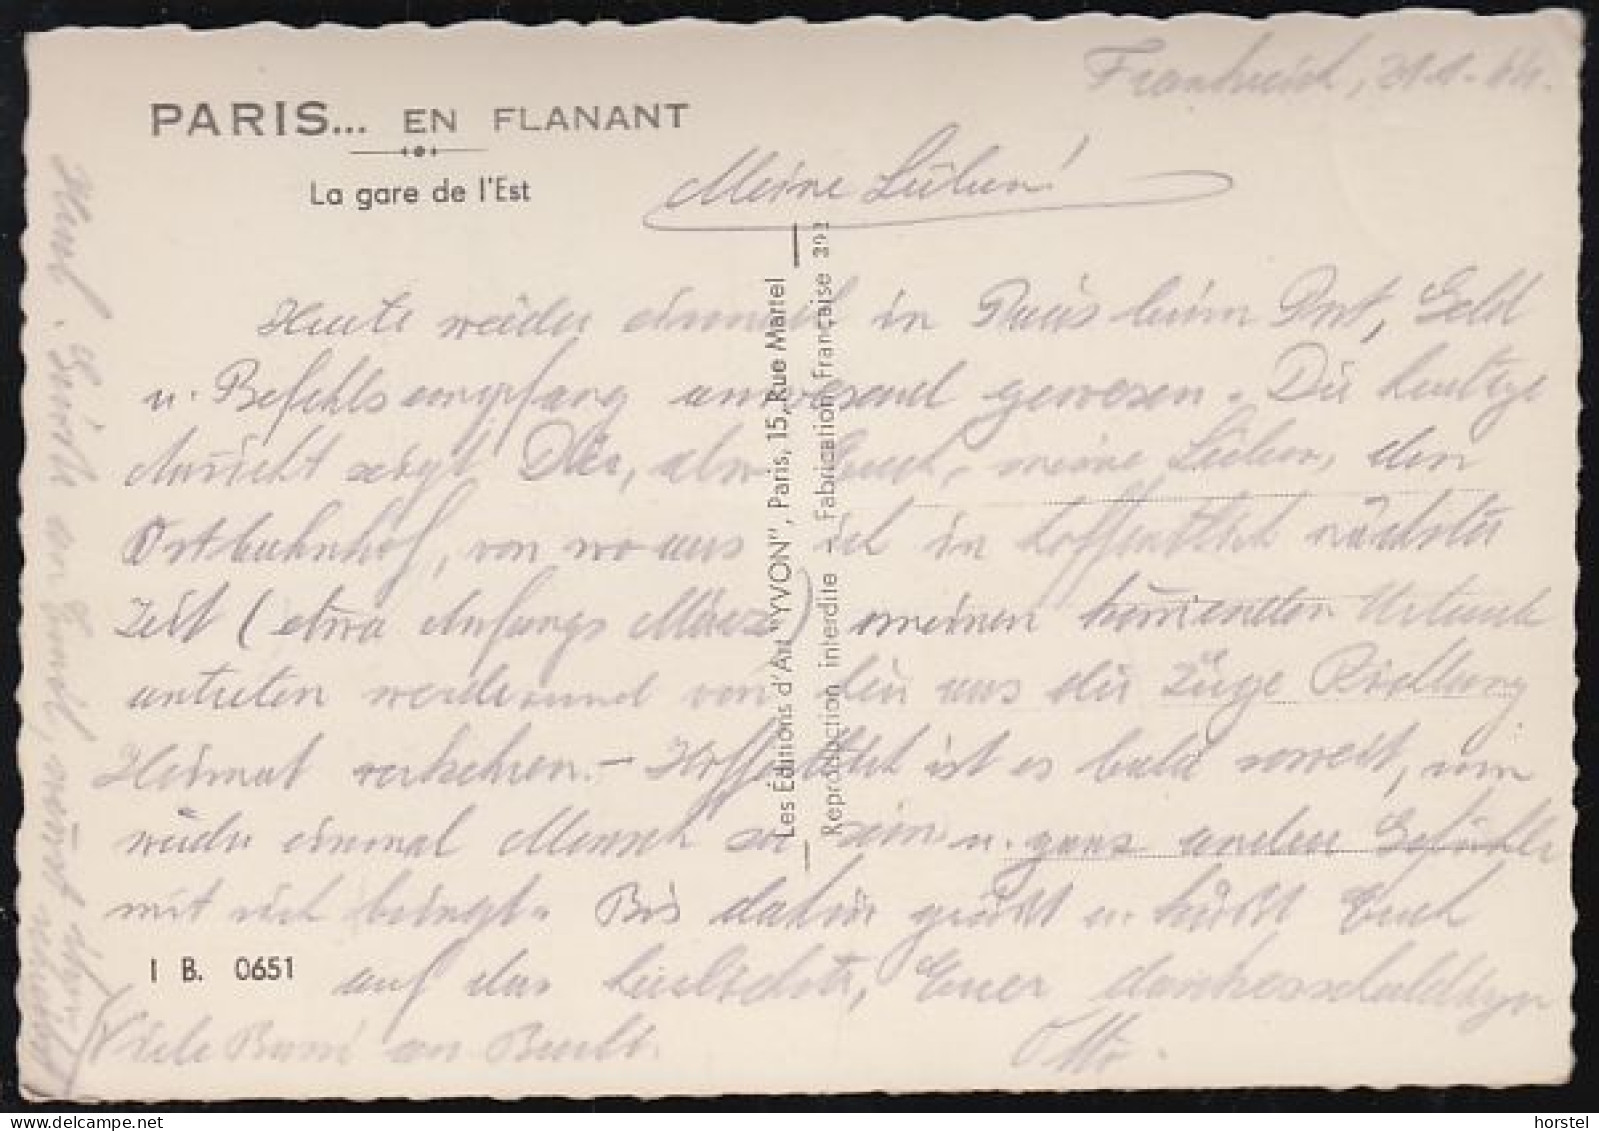 Frankreich, 31.1.44.
PARIS... EN FLANANT
La gare de l'Est
Meine Lieben!
Heute wieder einmal in Paris beim Post, Geld
u. Befehlsempfang anwesend gewesen. Die heutige
Ansicht zeigt Dir, bzw. Euch, meine Lieben, den
Ostbahnhof, von wo aus ich in hoffentlich nächster
Zeit (etwa Anfangs März) meinen Urlaub
antreten werde und von hier aus die Züge Richtung
Heimat verkehren. – Hoffentlich ist es bald soweit, um
wieder einmal Mensch zu sein u. ganz andere Gefühle
mit sich bringt. Bis dahin grüßt u. küßt Euch
auf das herzlichste, Euer
Otto.
Viele Bussi an
I B. 0651
Les Éditions d'Art "YVON", Paris, 15, Rue Martel
Reproduction interdite – Fabrication Française